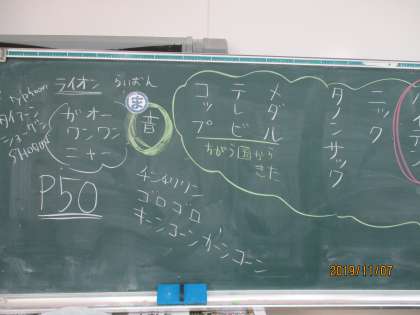 ニック
タノンサック
メダル
テレビ
コップ
ちがう国から
きた
音
ま
らいおん
ライオン
ガオー
ワンワン
ニャー
typhoon
タイフーン
P50
ゴロゴロ
キーンコーンカーンコーン
2019/11/07